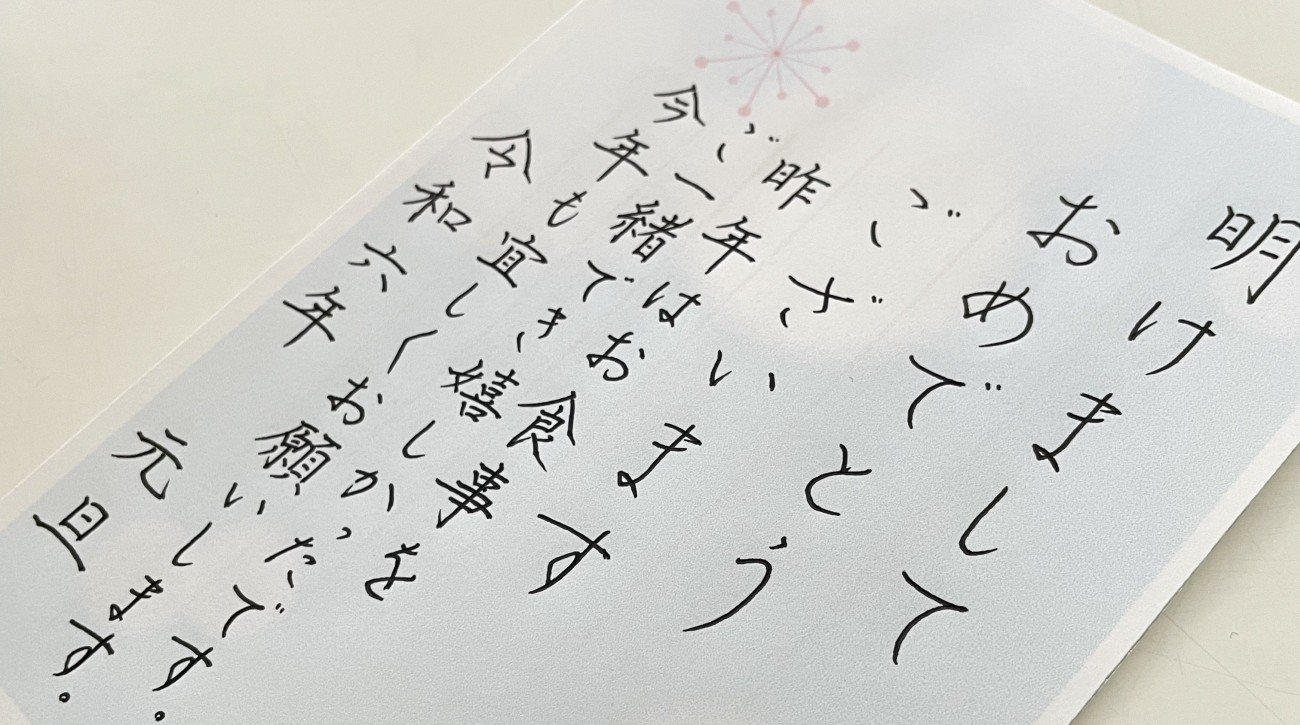 明けまして
おめでとう
ございます
昨年はお食事を
ご一緒でき嬉しかったです。
今年も宜しくお願いします。
令和六年 元旦